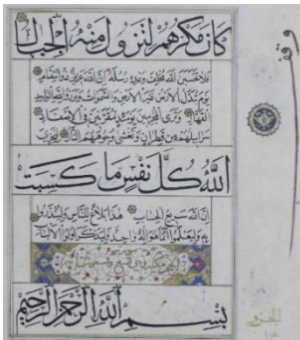 كان مكرهم لتزول منه الجبال
فلا تحسبن الله مخلف وعده رسله إن الله عزيز ذو انتقام
يوم تبدل الأرض غير الأرض والسموات وبرزوا لله الواحد
القهار وترى المجرمين يومئذ مقرنين في الأصفاد
سرابيلهم من قطران وتغشى وجوههم النار ليجزي
الله كل نفس ما كسبت
إن الله سريع الحساب هذا بلاغ للناس ولينذروا
به وليعلموا أنما هو إله واحد وليذكر أولوا الألباب
بسم الله الرحمن الرحيم
وقف
الجزو